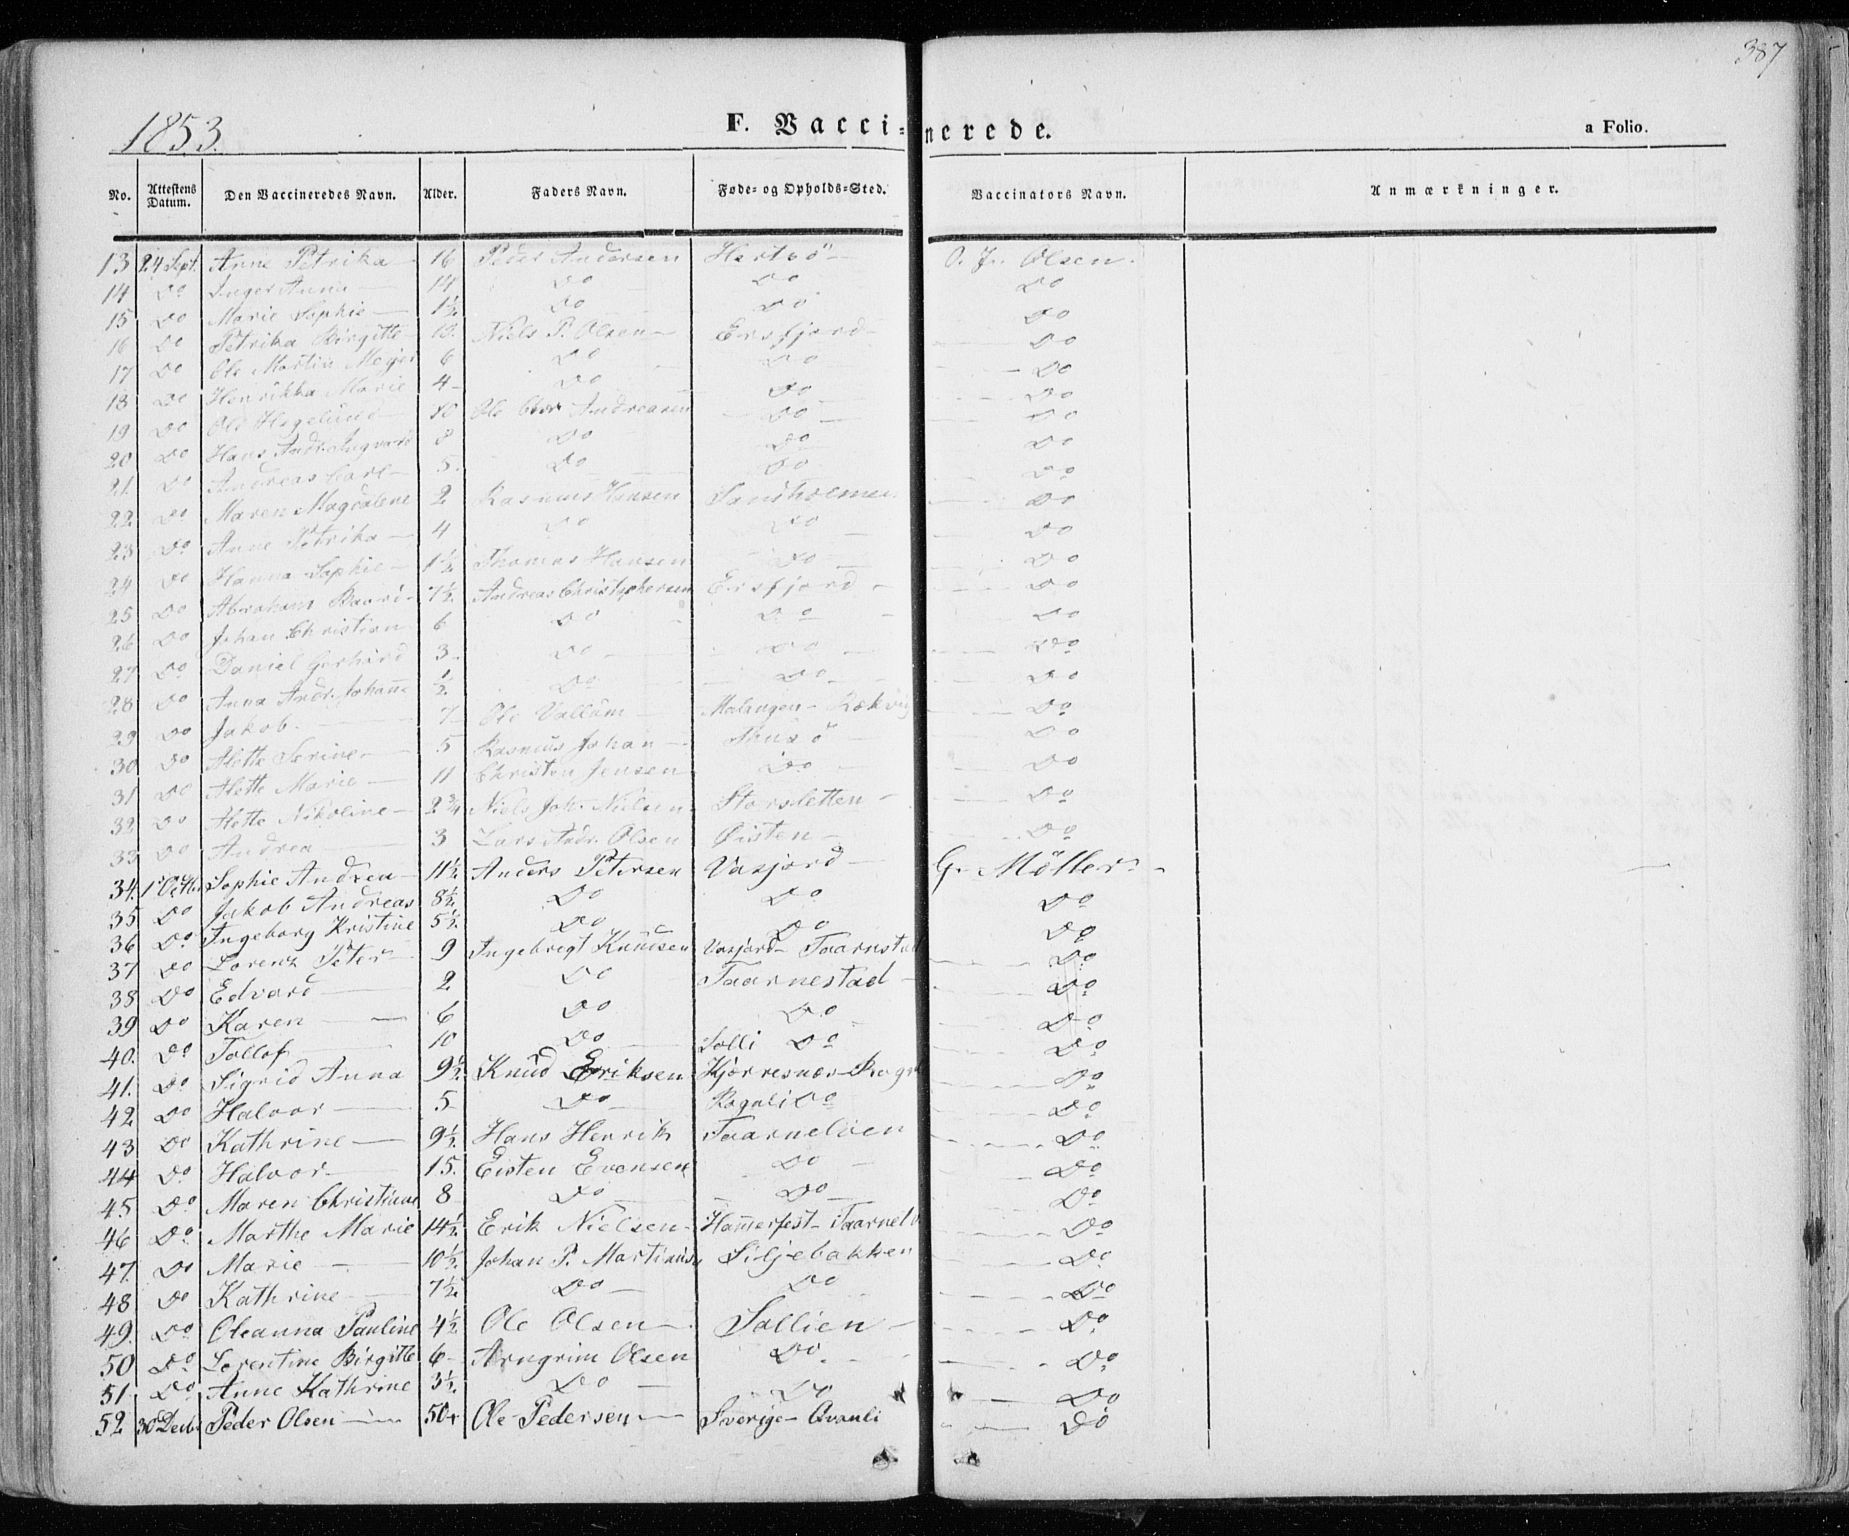 387
1853.
F. Vaccinerede.
a Folio.
No. Attestens Datum. Den Vaccineredes Navn. Alder. Faders Navn. Føde- og Opholds-Sted. Vaccinators Navn. Anmærkninger.
13 24 Sept. Anne Petrika 16 Peder Andersen Hertsö O. J. Olsen.
14 Do Inger Anna 14 Do Do Do
15 Do Marie Sophie 1½ Do Do Do
16 Do Petrika Birgitte 10 Niels P. Olsen Ersfjord Do
17 Do Ole Martin Meyer 6 Do Do Do
18 Do Henrikka Marie 4 Do Do Do
19 Do Ole Hegelund 10 Ole Chr Andreasen Do Do
20 Do Hans Andr. Ingvard 8 Do Do Do
21 Do Andreas Carl 5 Do Do Do
22 Do Maren Magdalene 2 Rasmus Hansen Sandholmen Do
23 Do Anne Petrika 4 Do Do Do
24 Do Hanna Sophie 1½ Thomas Hansen Do Do
25 Do Abraham 7½ Andreas Christophersen Ersfjord Do
26 Do Johan Christian 6 Do Do Do
27 Do Daniel Gerhard 3 Do Do Do
28 Do Anna Andr. Johanne ½ Do Do Do
29 Do Jakob 7 Ole Vallum Malangen Do
30 Do Alette Serine 5 Rasmus Johan Do
31 Do Alette Marie 11 Christen Jensen Do Do
32 Do Alette Nikoline 2¾ Niels Joh. Nielsen Storsletten Do
33 Do Andrea 3 Lars Andr. Olsen Öisten Do
34. 1 Octbr Sophie Andrea 11½ Anders Petersen Vasjord G. Möller
35 Do Jakob Andreas 8½ Do Do Do
36 Do Ingeborg Kristine 5½ Do Do Do
37 Do Lorenz Peter 9 Ingebregt Knudsen Vasjord Taarnestad Do
38 Do Edvard 2 Do Taarnestad Do
39 Do Karen 6 Do Do Do
40. Do Tollof 10 Do Solli Do Do
41. Do Sigrid Anna 9½ Knud Eriksen Kjærresnæs Do
42 Do Halvor 5 Do Rognli Do Do
43 Do Kathrine 9½ Hans Henrik Taarnelven Do
44 Do Halvor 15. Eisten Evensen Do Do
45 Do Maren Christiane 8 Do Do Do
46 Do Marthe Marie 14½ Erik Nielsen Hammerfest Taarnelv Do
47. Do Marie 10½ Johan P. Martinus Siljebakken Do
48 Do Kathrine 7½ Do Do Do
49. Do Oleanna Pauline 4½ Ole Olsen Sollien Do
50 Do Lorentine Birgitte 6 Arngrim Olsen Do Do
51 Do Anne Kathrine 3½ Do Do Do
52 30 Decbr Peder Olsen 50 Ole Pedersen Sverige Qvanli Do